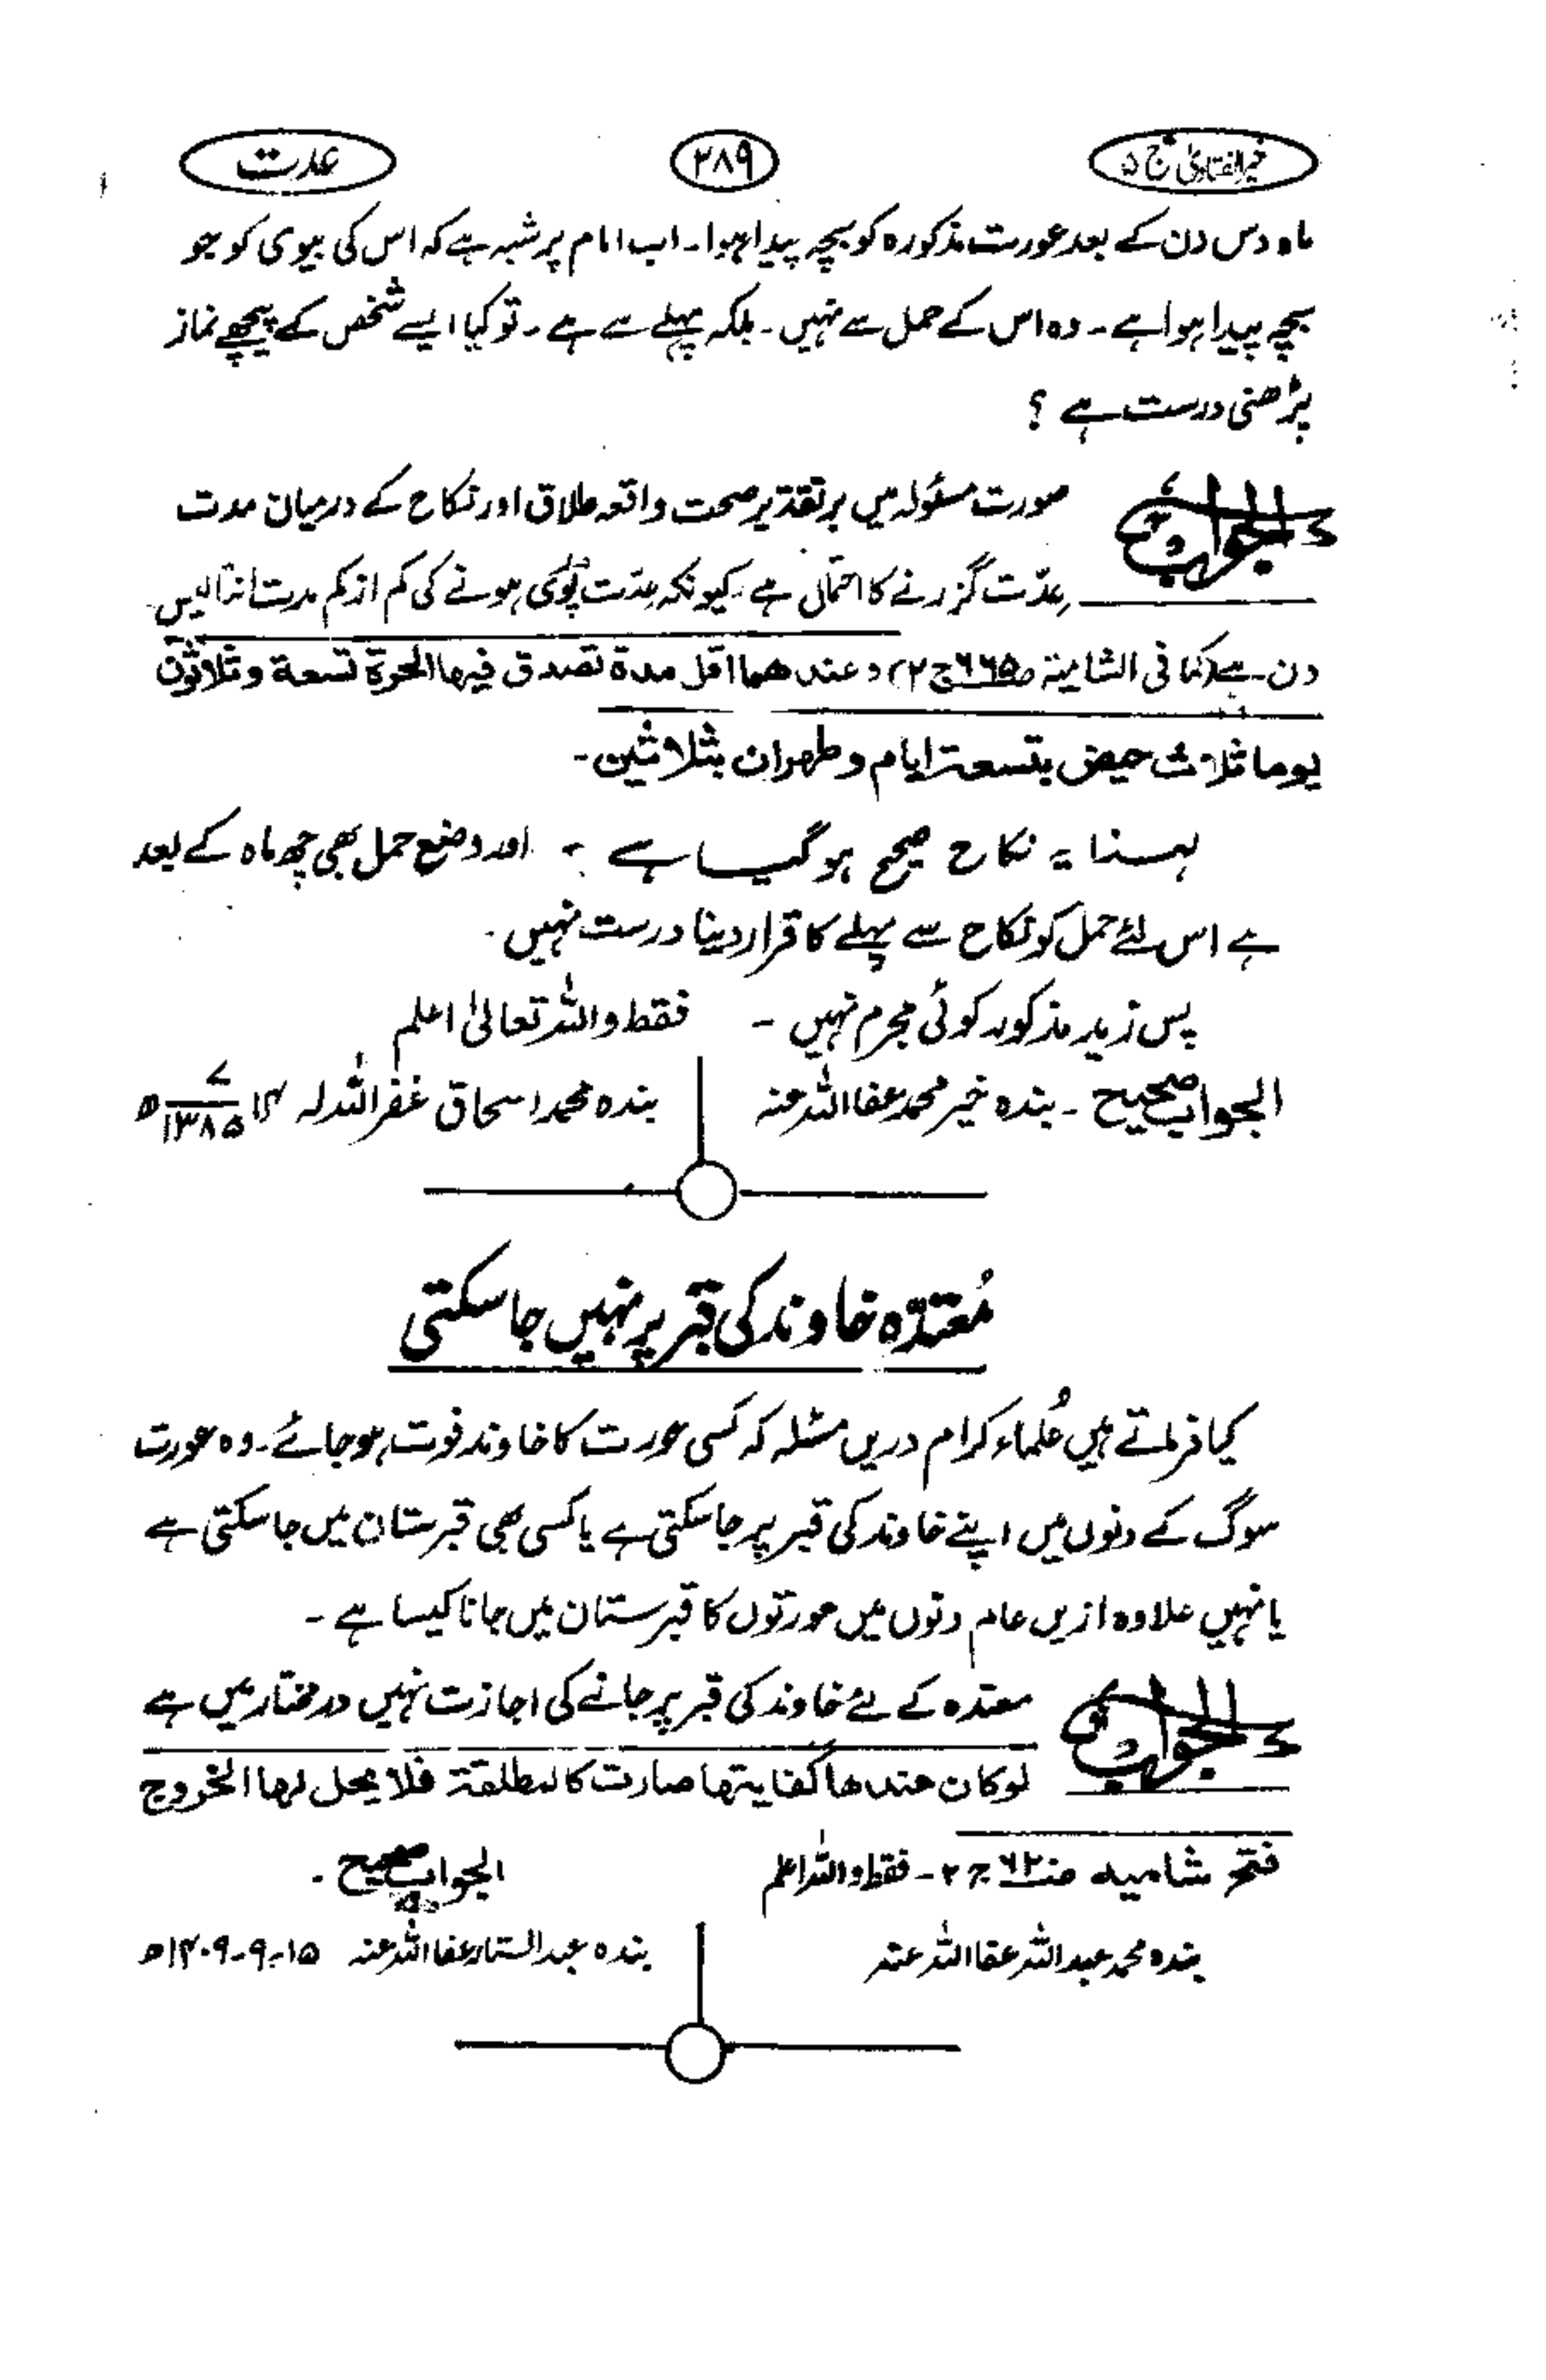 خیر الفتاویٰ ج ۵
۲۸۹
عدت
ماہ دس دن کے بعد عورت مذکورہ کو بچہ پیدا ہوا۔ اب امام پر شبہ ہے کہ اس کی بیوی کو جو
بچہ پیدا ہوا ہے۔ وہ اس کے حمل سے نہیں۔ بلکہ پہلے سے ہے۔ تو کیا ایسے شخص کے پیچھے نماز
پڑھنی درست ہے؟
الجواب صورت مسئولہ میں برتقدیر صحت واقعہ طلاق اور نکاح کے درمیان مدت
عدّت گزرنے کا احتمال ہے، کیونکہ عدّت پوری ہونے کی کم از کم مدت انتالیس
دن ہے (کما فی الشامیۃ ص۶۶۵ ج۲) وعندھما اقل مدۃ تصدق فیھا الحرۃ تسعۃ وثلاثون
یوما ثلاث حیض بتسعۃ ایام وطھران بثلاثین۔
لہٰذا یہ نکاح صحیح ہو گیا ہے۔ اور وضع حمل بھی چھ ماہ کے بعد
ہے اس لئے حمل کو نکاح سے پہلے کا قرار دینا درست نہیں۔
پس زید مذکور کوئی مجرم نہیں۔ فقط واللہ تعالیٰ اعلم
الجواب صحیح۔ بندہ خیر محمد عفا اللہ عنہ
بندہ محمد اسحاق غفر اللہ لہ ۷ ۱۳۸۵ھ
مُعتدّہ خاوند کی قبر پر نہیں جا سکتی
کیا فرماتے ہیں عُلماء کرام دریں مسئلہ کہ کسی عورت کا خاوند فوت ہو جائے۔ وہ عورت
سوگ کے دنوں میں اپنے خاوند کی قبر پر جا سکتی ہے یا کسی بھی قبرستان میں جا سکتی ہے
یا نہیں علاوہ ازیں عام دنوں میں عورتوں کا قبرستان میں جانا کیسا ہے۔
الجواب معتدہ کے لئے خاوند کی قبر پر جانے کی اجازت نہیں درمختار میں ہے
لو کان عندھا کفایتھا صارت کالمطلقۃ فلا یحل لھا الخروج
فتح شامیہ ص۶۲ ج۲۔ فقط واللہ اعلم
الجواب صحیح۔
بندہ محمد عبداللہ عفا اللہ عنہ
بندہ عبدالستار عفا اللہ عنہ ۱۵-۹-۱۴۰۹ھ